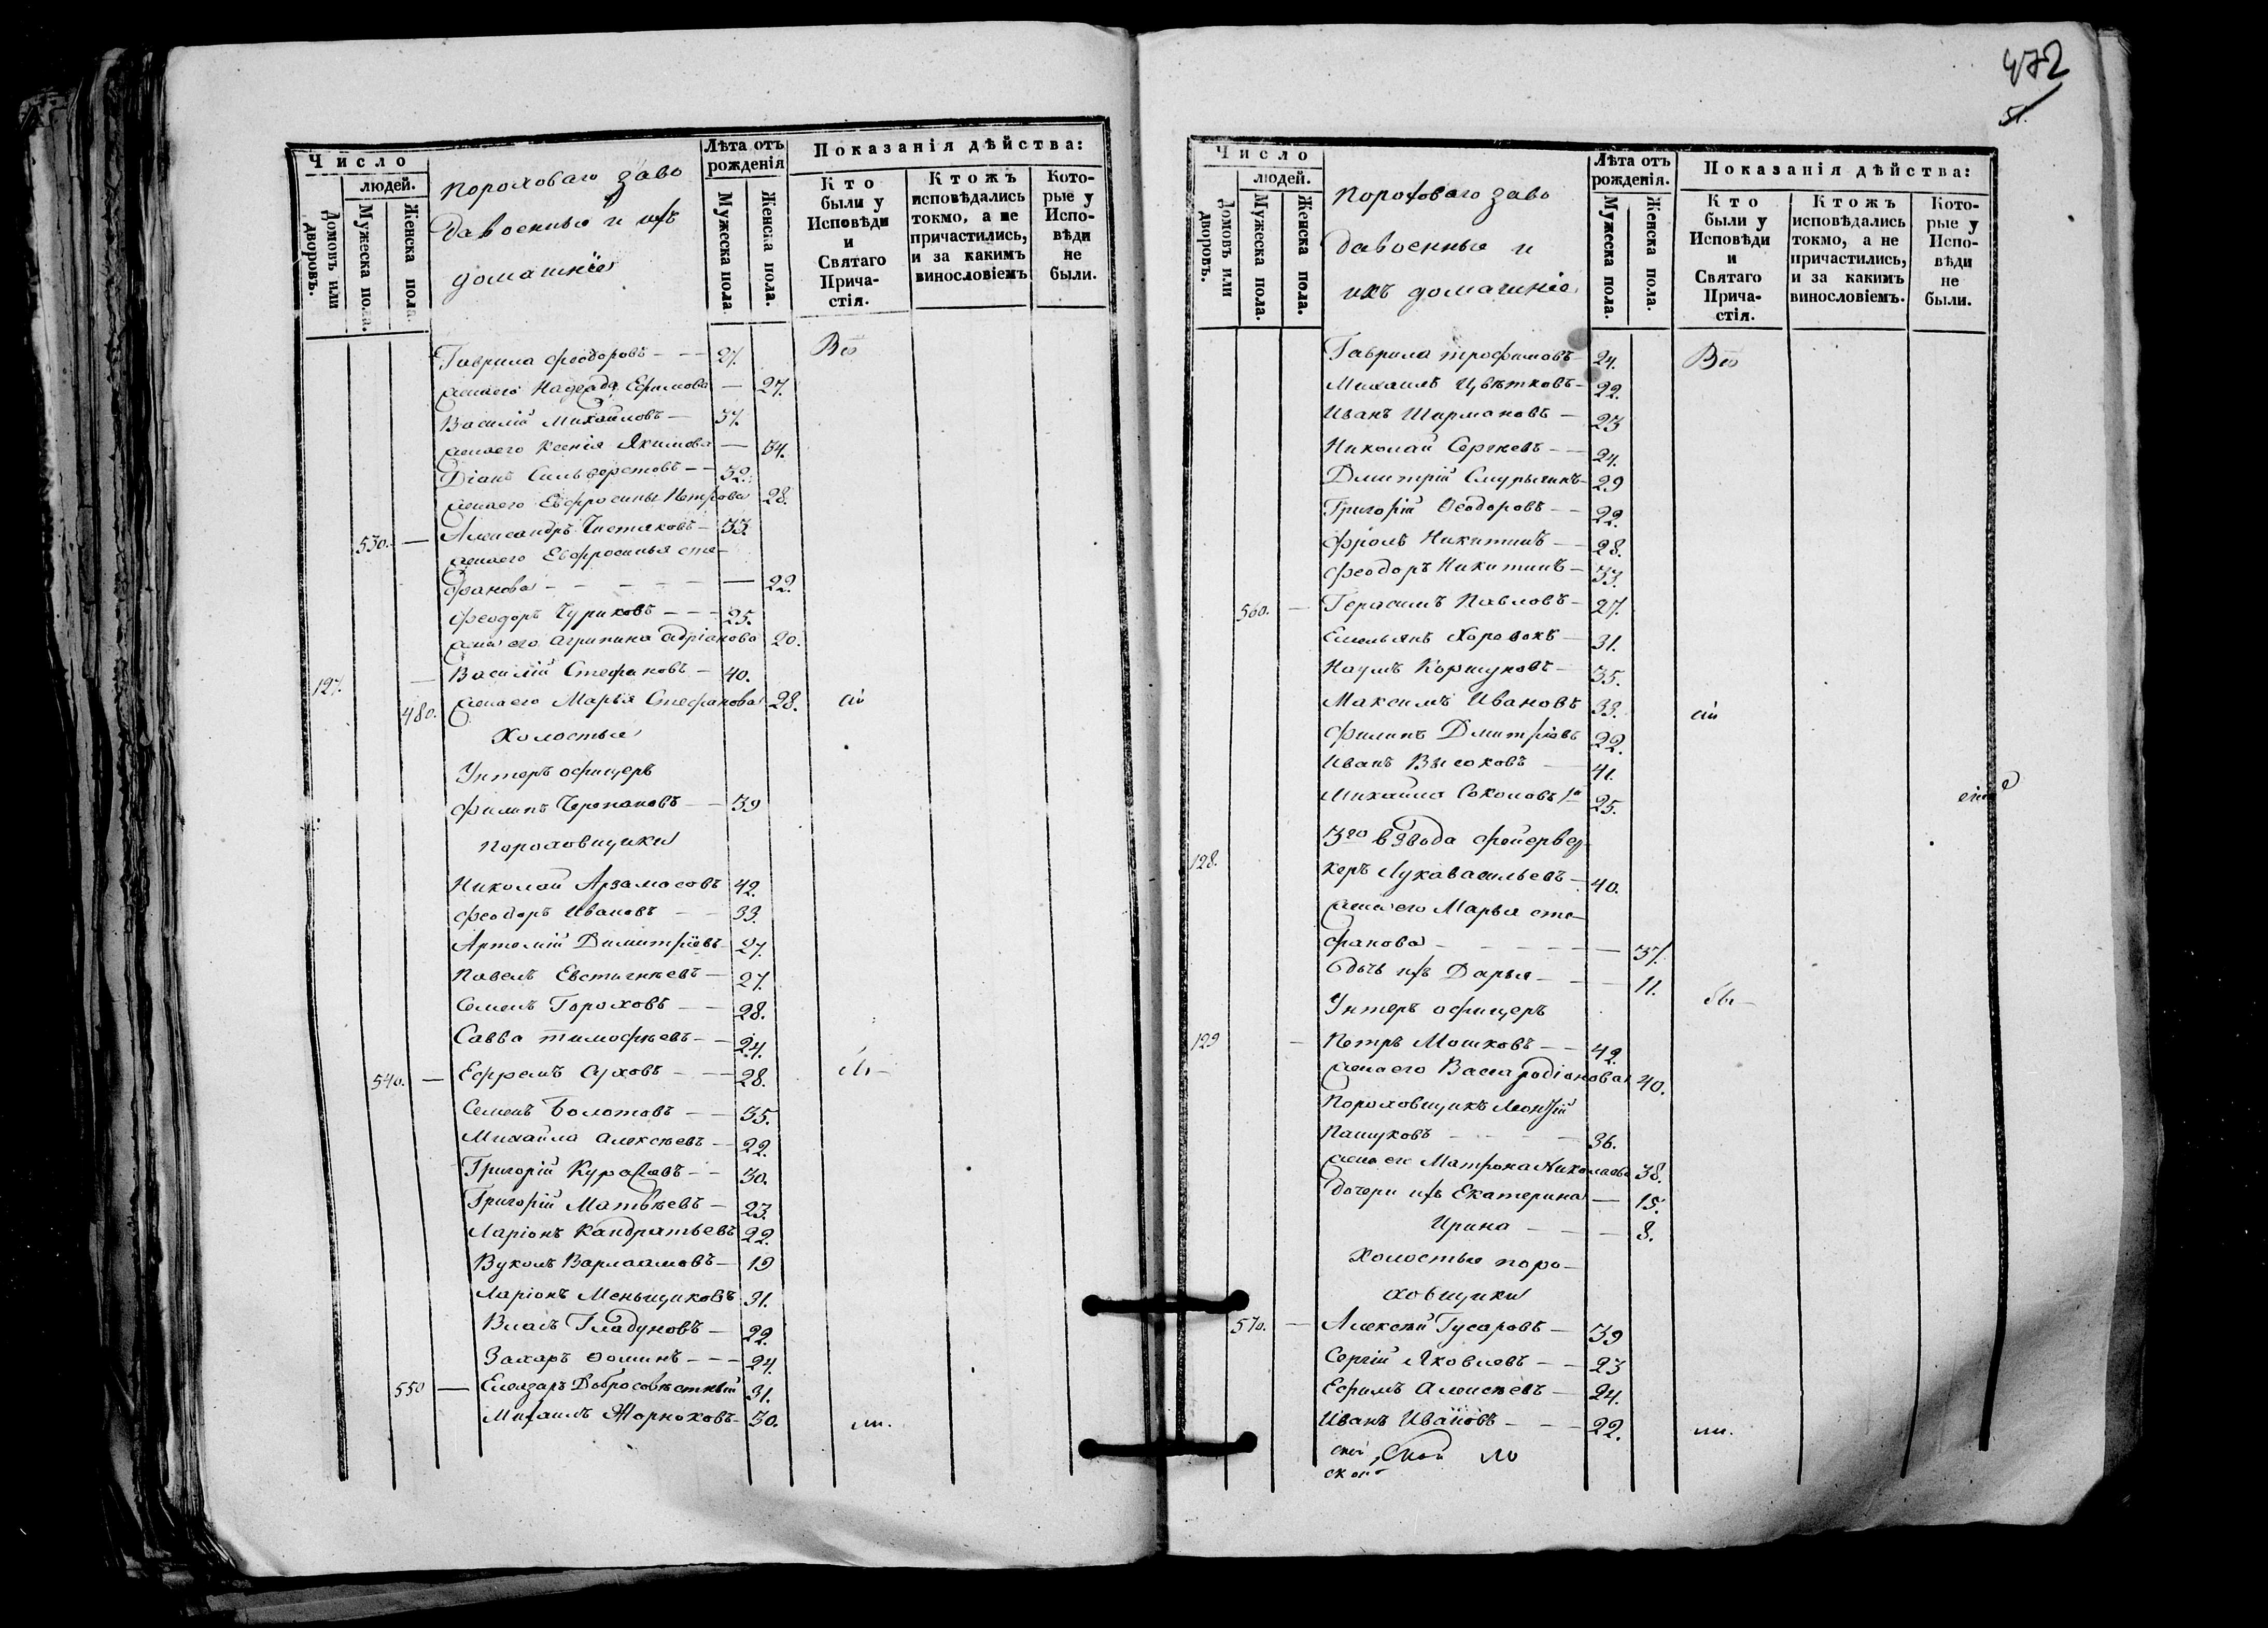 472
51.
Число
людей.
Домовъ или дворовъ.
Мужеска пола.
Женска пола.
Пороховаго заво
да военные и ихъ
домашніе
Лѣта отъ рожденія
Мужеска пола
Женска пола.
Показанія дѣйства:
Кто были у Исповѣди и Святаго Причастія.
Ктожъ исповѣдались токмо, а не причастились, и за какимъ винословіемъ
Которые у Исповѣди не были.
Гаврила Феодоровъ - - 27. Всѣ
жена его Надежда Ефимова — 27.
Василій Михайловъ — 37.
жена его Ксенія Якимова — 34.
Діанъ Сильверстовъ - - 32.
жена его Евфросинья Петрова 28.
530. — Александръ Чистяковъ — 33.
жена его Евфросинья Сте-
фанова - - - - - — 22.
Феодоръ Чуриковъ - - - 25.
жена его Агрипина Адріанова 20.
127. — Василій Стефановъ — 40.
480. жена его Марья Стефанова 28. сіи
Холостые
Унтеръ офицеръ
Филипъ Черепановъ - - 39
Пороховщики
Николай Арзамасовъ 42.
Феодоръ Ивановъ - - 33.
Артемій Димитріевъ - 27.
Павелъ Евстигнѣевъ — 27.
Семенъ Гороховъ - - 28.
Савва Тимофѣевъ - - 24.
540. — Ефремъ Суховъ - - - 28. бы-
Семенъ Болотовъ - - 35.
Михайла Алексѣевъ - 22.
Григорій Куралевъ - - 30.
Григорій Матвѣевъ - 23.
Ларіонъ Кандратьевъ 22.
Вуколъ Варлаамовъ - 19
Ларіонъ Меньщиковъ 31.
Власъ Гладуновъ - 22.
Захаръ Фоминъ - - - 24.
550 — Елеазаръ Добросовѣстный 31.
Михаилъ Жорноховъ - 30. ли.
Число
людей.
Домовъ или дворовъ.
Мужеска пола.
Женска пола.
Пороховаго заво
да военные и
ихъ домашніе
Лѣта отъ рожденія.
Мужеска пола.
Женска пола.
Показанія дѣйства:
Кто были у Исповѣди и Святаго Причастія.
Ктожъ исповѣдались токмо, а не причастились, и за какимъ винословіемъ.
Которые у Исповѣди не были.
Гаврила Трофимовъ 24. Всѣ
Михаилъ Цвѣтковъ - 22.
Иванъ Шармановъ — 23
Николай Сергѣевъ - - 24.
Дмитрій Смурыгинъ - 29
Григорій Феодоровъ - - 22.
Фролъ Никитинъ - - 28.
Феодоръ Никитинъ - 33.
560. — Герасимъ Павловъ - 27.
Емельянъ Хоровокъ — 31.
Наумъ Коршуновъ — 35.
Максимъ Ивановъ 33. сіи
Филипъ Дмитріевъ 22.
Иванъ Высоковъ — 41.
Михайла Соколовъ 1й 25.
3го взвода фейервер
128. керъ Лука Васильевъ - 40.
жена его Марья Сте-
фанова - - - - - — 37.
дочь ихъ Дарья - - — 11. бы-
Унтеръ офицеръ
129 — Петръ Мошковъ - - 42.
жена его Васса Родіонова 40.
Пороховщикъ Леонтій
Пашуковъ - - - — 36.
жена ег Матрона Николаева 38.
дочери ихъ Екатерина — 15.
Ирина - - — 8.
Холостые поро-
ховщики
570. — Алексѣй Гусаровъ — 39
Сергій Яковлевъ - - 23
Ефимъ Алексѣевъ - 24.
Иванъ Ивановъ - - - 22. ли.